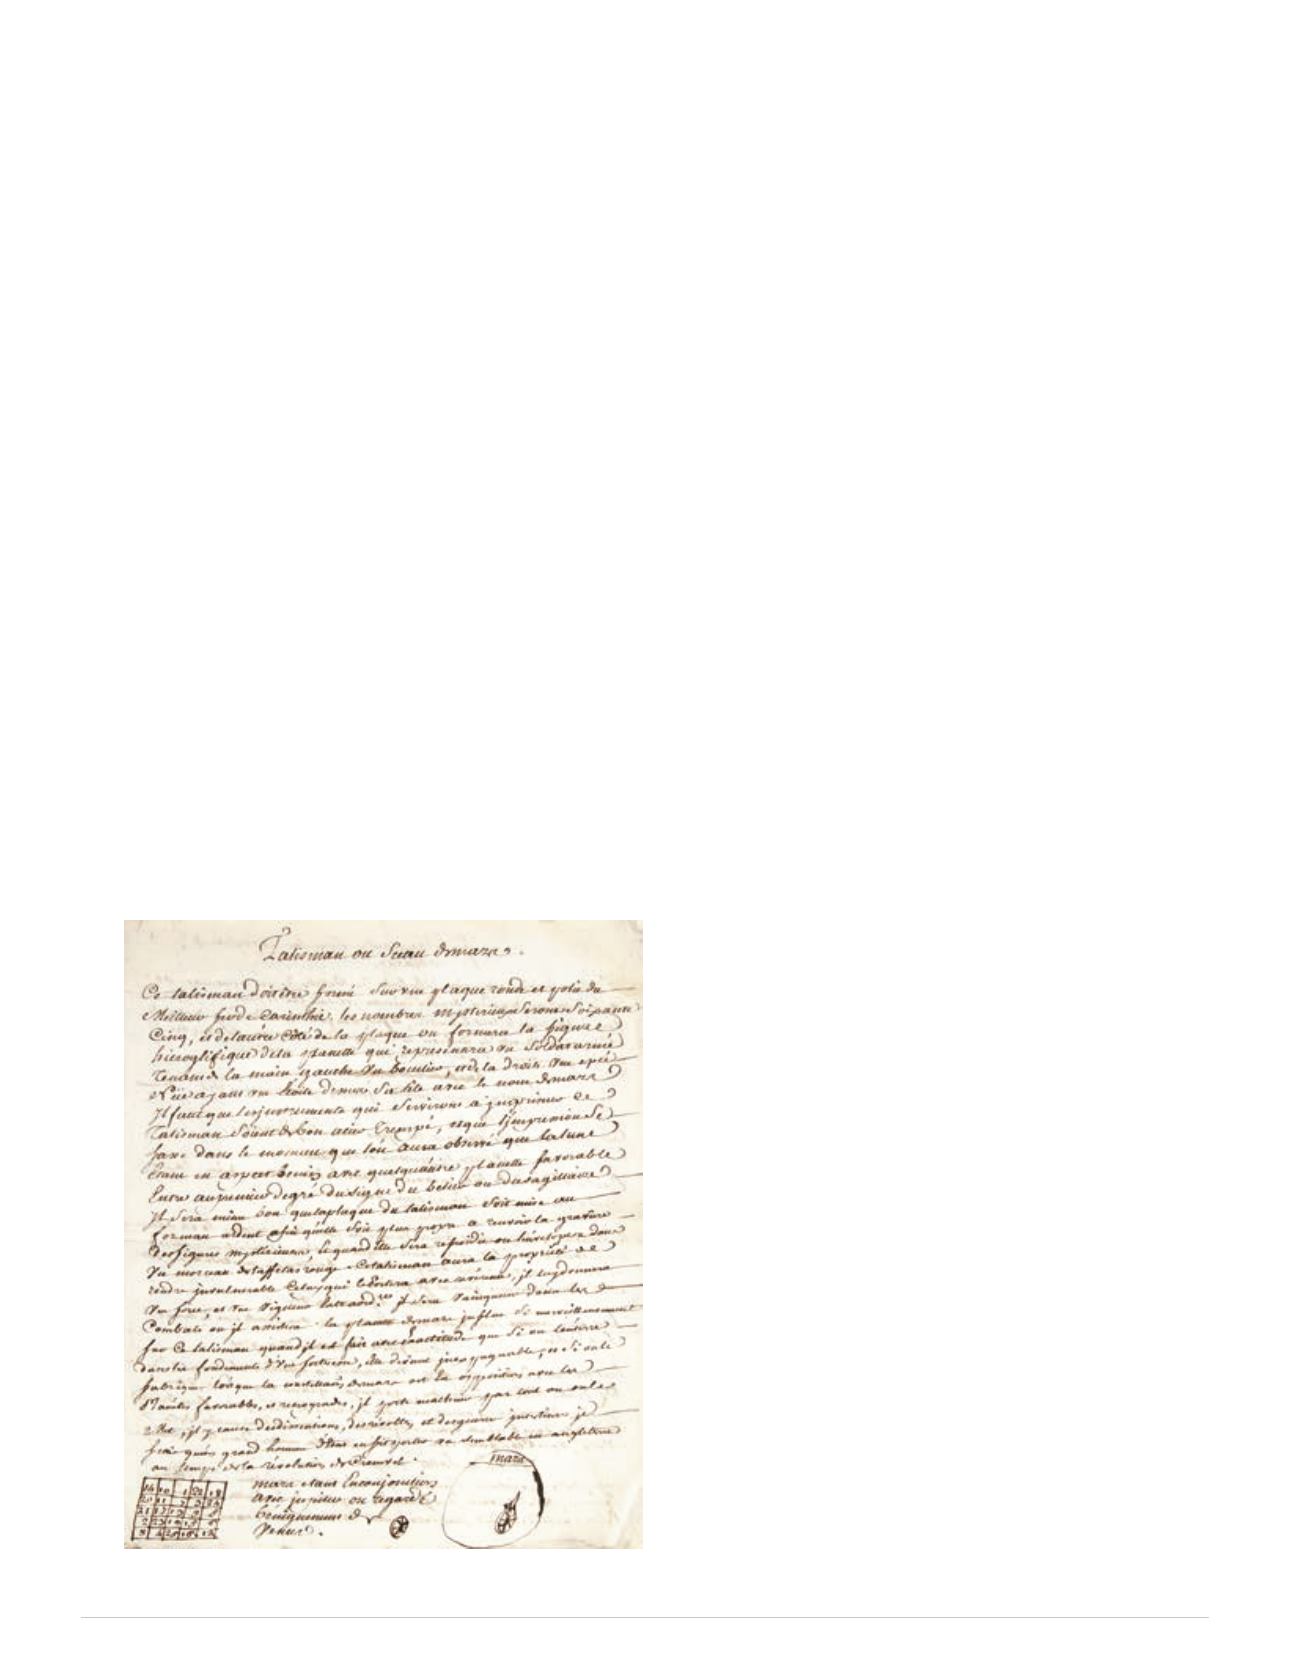 Talisman ou Sceau de mars.
Ce talisman doit être formé sur une plaque ronde et polie du
Meilleur fer de Carinthie, les nombres mysterieux seront soixante
Cinq, et de l'autre côté de la plaque on formera la figure
hieroglifique de la planette qui representera un soldat armé
tenant de la main gauche un bouclier, et de la droite une epée
nüe ayant une étoile dessus sa tête avec le nom de mars
Jl faut que les jnstruments qui serviront a jmprimer ce
Talisman soient de bon acier trempé, et que l'jmpression se
fasse dans le moment que l'on aura observé que la lune
étant en aspect benin avec quelqu'autre planette favorable
Entre au premier degré du signe du belier ou du sagittaire
Jl sera même bon que la plaque du talisman soit mise au
ardent afin qu'elle soit plus propre a recevoir la gravure
des figures mysterieuses, et quand elle sera refroidie on l'envelopera dans
un morceau de taffetas rouge. Ce talisman aura la proprieté de
rendre jnvulnerable celuy qui le portera avec, jl luy donnera
une force, et une vigueur, jl sera vainqueur dans les
Combats ou jl assistera. la planette de mars jnflue si merveilleusement
sur ce talisman quand jl est fait avec Exactitude que si on l'enterre
dans les fondements d'une forteresse, elle devient jnexpugnable, et si on le
fabrique lorsque la de mars est en opposition avec les
favorables, et retrogrades, jl porte malheur par tout ou on le
met, jl y cause des dissentions, des révoltes, et des guerres jntestines je
sçais qu'un grand homme d'état en fit porter un semblable en angleterre
au temps de la révolution de Cromvel.
14 10 1 22 18
20 11 7 3 24
21 17 13 9 5
2 23 19 15 6
8 4 25 16 12
mars étant En conjonction
avec jupiter ou regardé
benignement de
Venus.
mars